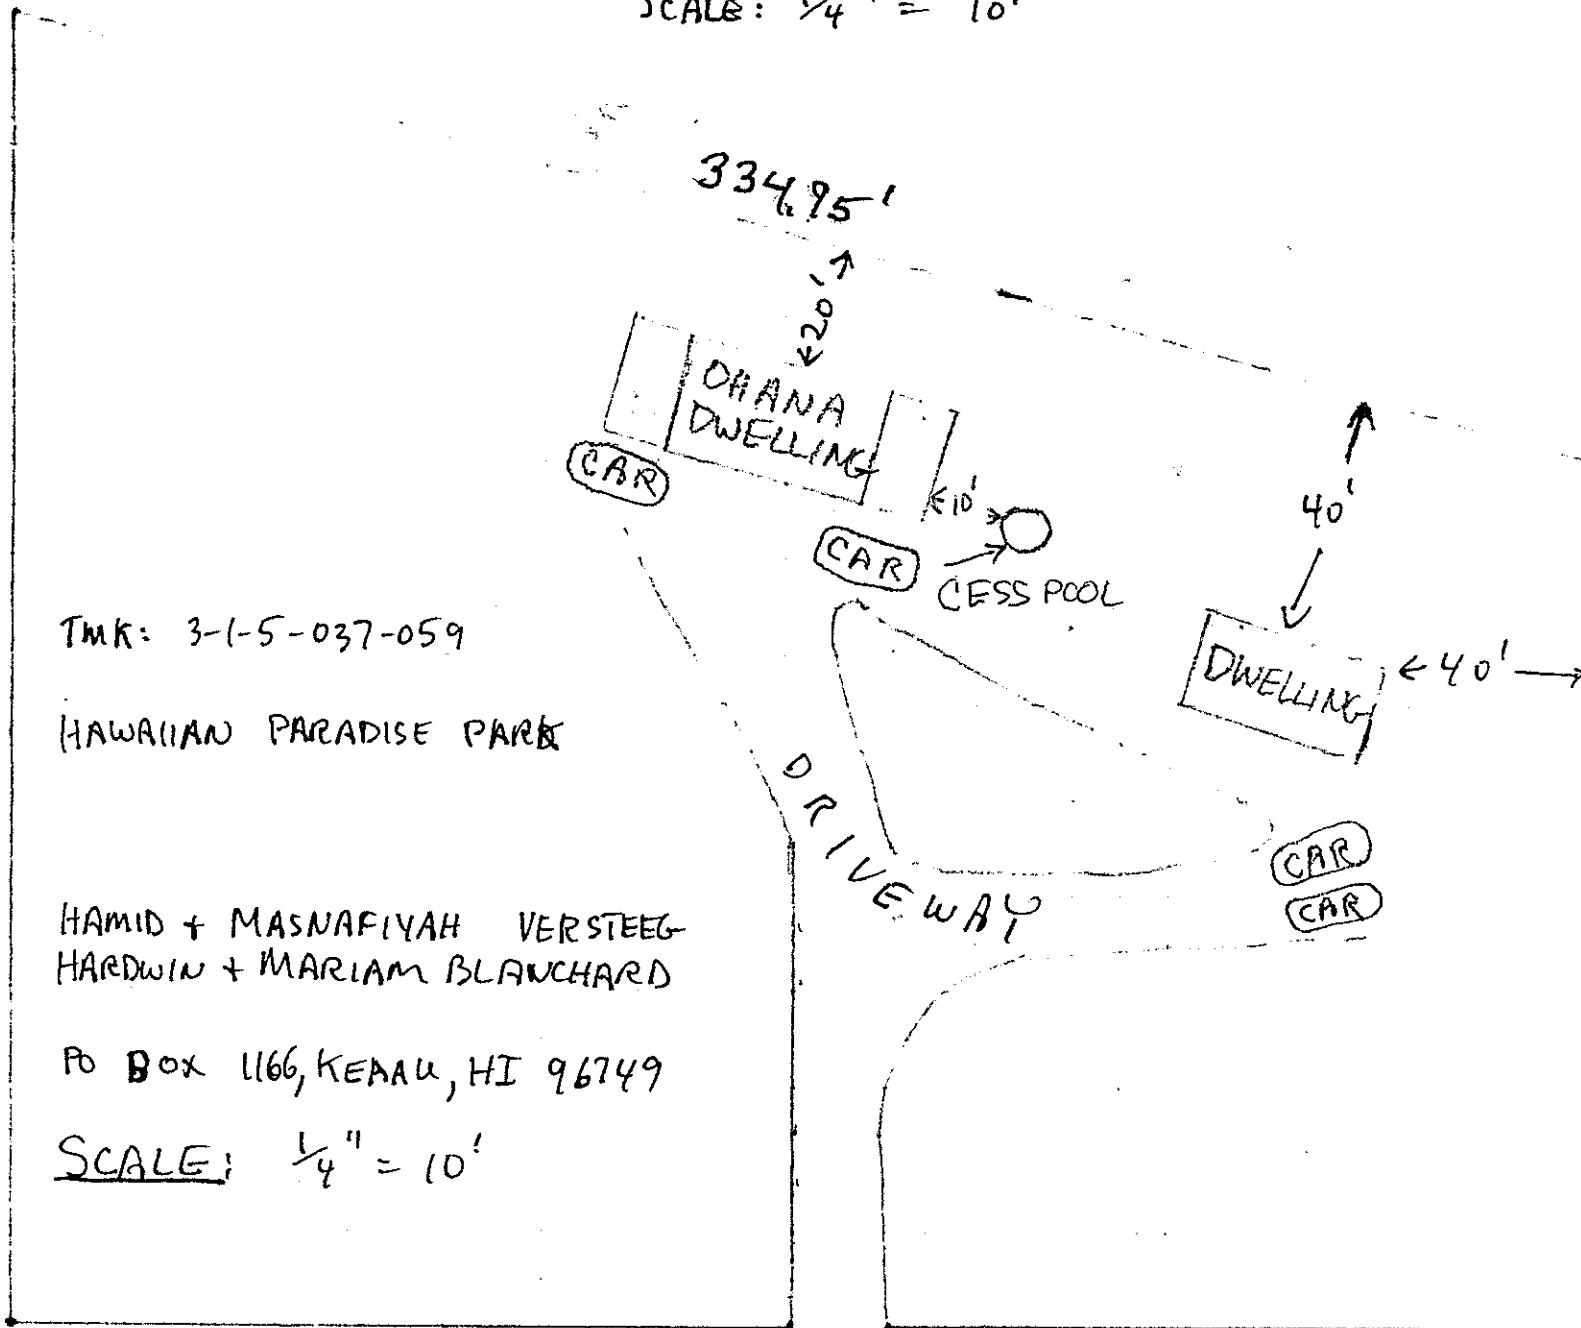 SCALE: 1/4" = 10'
334.95'
20'
OHANA
DWELLING
CAR
10'
CAR
CESS POOL
40'
DWELLING
40'
TMK: 3-1-5-037-059
HAWAIIAN PARADISE PARK
DRIVEWAY
CAR
CAR
HAMID + MASNAFIYAH VERSTEEG
HARDWIN + MARIAM BLANCHARD
PO BOX 1166, KEAAU, HI 96749
SCALE: 1/4" = 10'